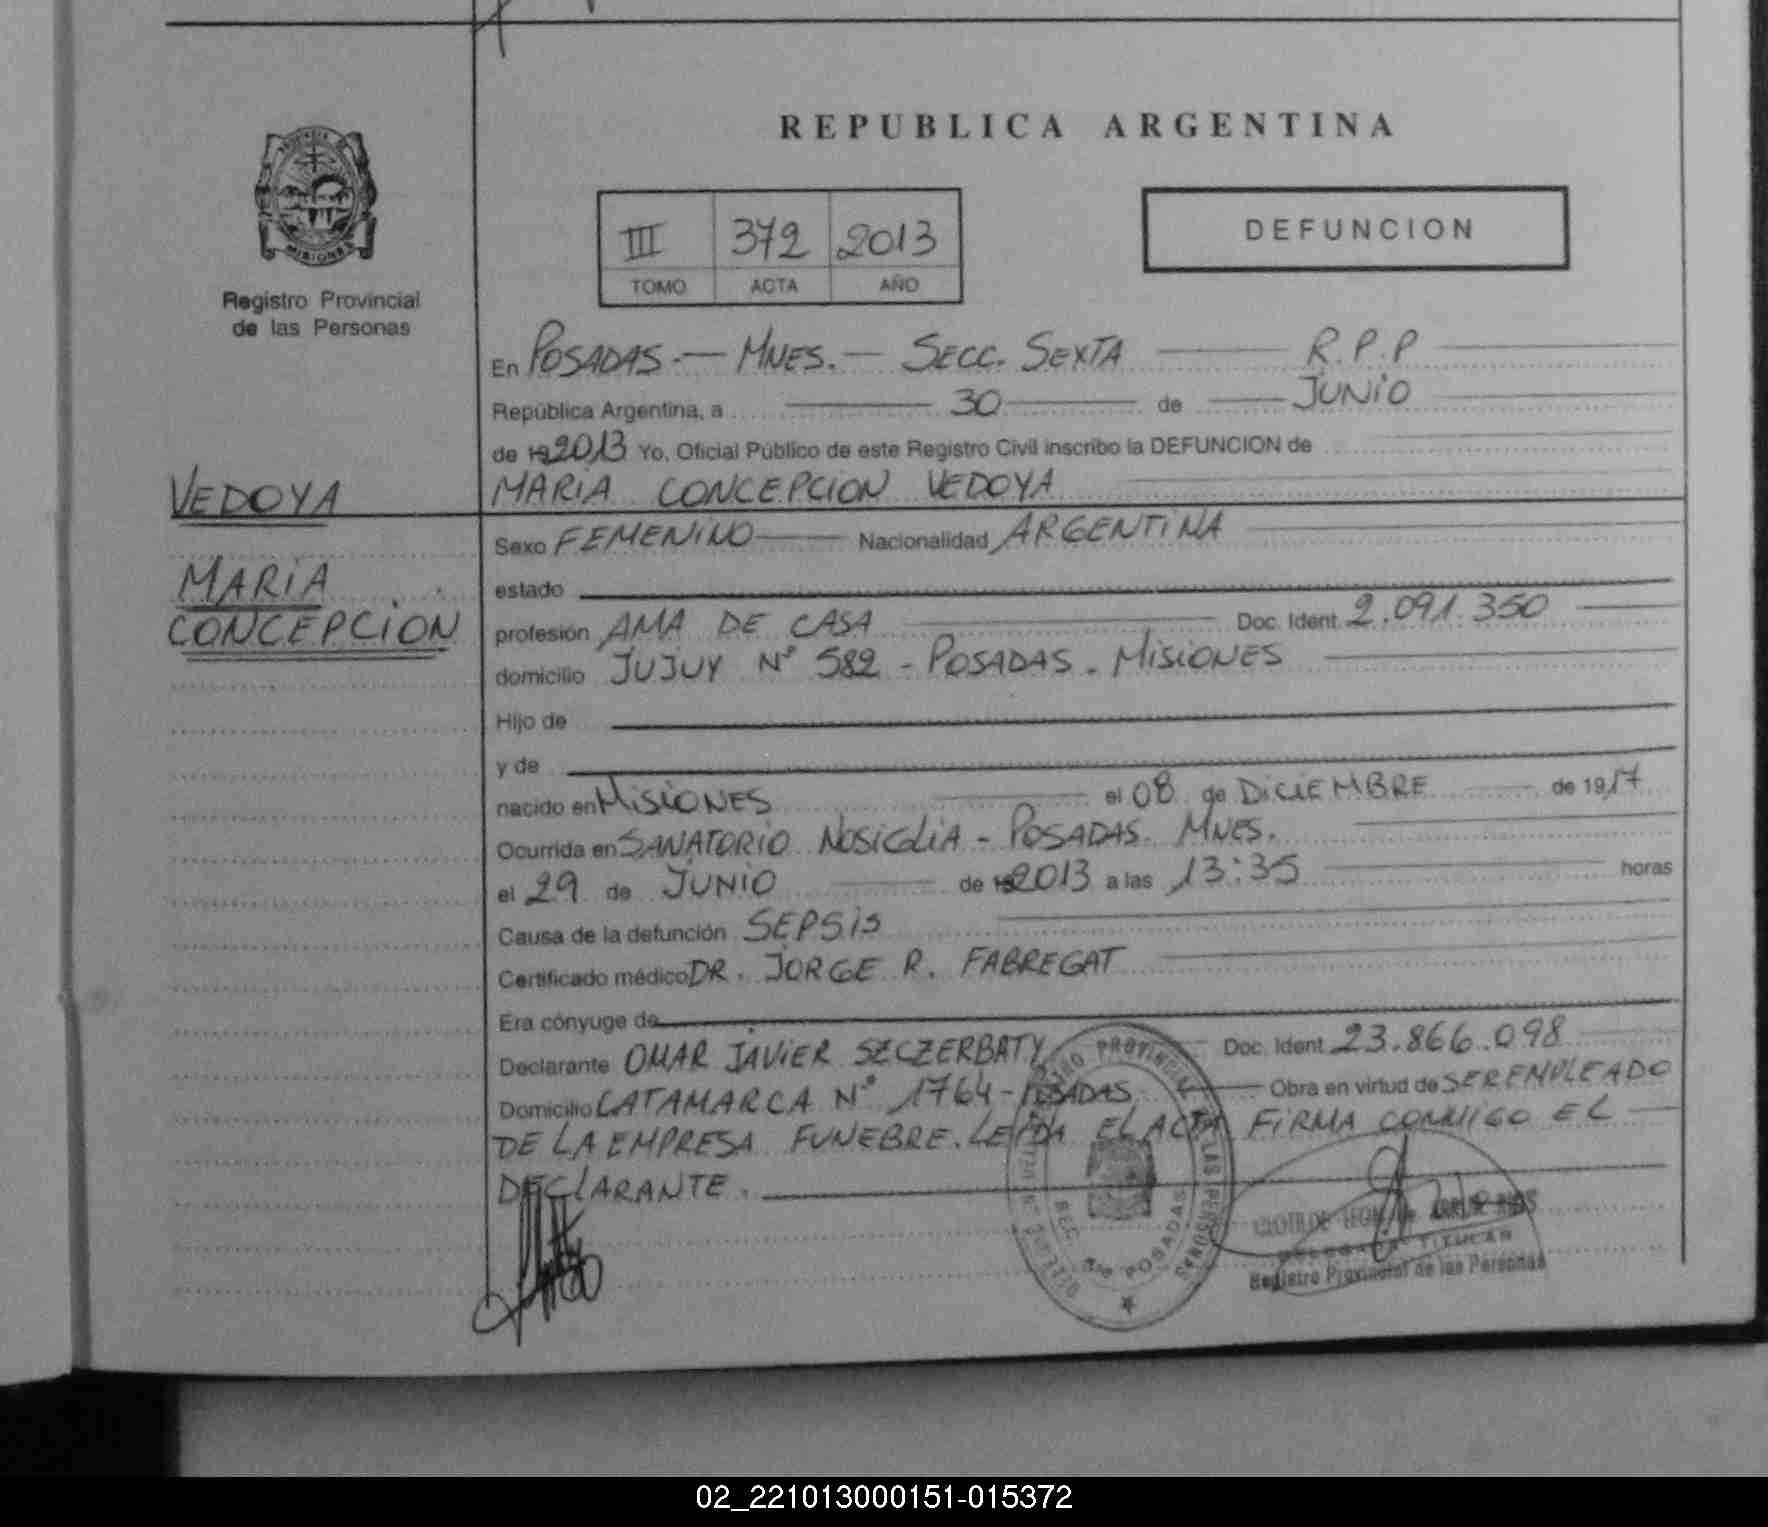 REPUBLICA ARGENTINA
PROVINCIA DE
MISIONES
Registro Provincial
de las Personas
III 372 2013
TOMO ACTA AÑO
DEFUNCION
En POSADAS.- MNES.- SECC. SEXTA R.P.P
República Argentina, a 30 de JUNIO
de 19 2013 Yo, Oficial Público de este Registro Civil inscribo la DEFUNCION de
VEDOYA
MARIA CONCEPCION VEDOYA
Sexo FEMENINO Nacionalidad ARGENTINA
MARIA
CONCEPCION
estado
profesión AMA DE CASA Doc. Ident. 2.091.350
domicilio JUJUY N° 582 - POSADAS - MISIONES
Hijo de
y de
nacido en MISIONES el 08 de DICIEMBRE de 1917
Ocurrida en SANATORIO NOSIGLIA - POSADAS. MNES.
el 29 de JUNIO de 19 2013 a las 13:35 horas
Causa de la defunción SEPSIS
Certificado médico DR. JORGE R. FABREGAT
Era cónyuge de
Declarante OMAR JAVIER SZCZERBATY Doc. Ident. 23.866.098
Domicilio CATAMARCA N° 1764 - POSADAS Obra en virtud de SER EMPLEADO
DE LA EMPRESA FUNEBRE. LEIDA EL ACTA FIRMA CONMIGO EL
DECLARANTE.
REGISTRO PROVINCIAL DE LAS PERSONAS
POSADAS
DELEGADA TITULAR
Registro Provincial de las Personas
02_221013000151-015372